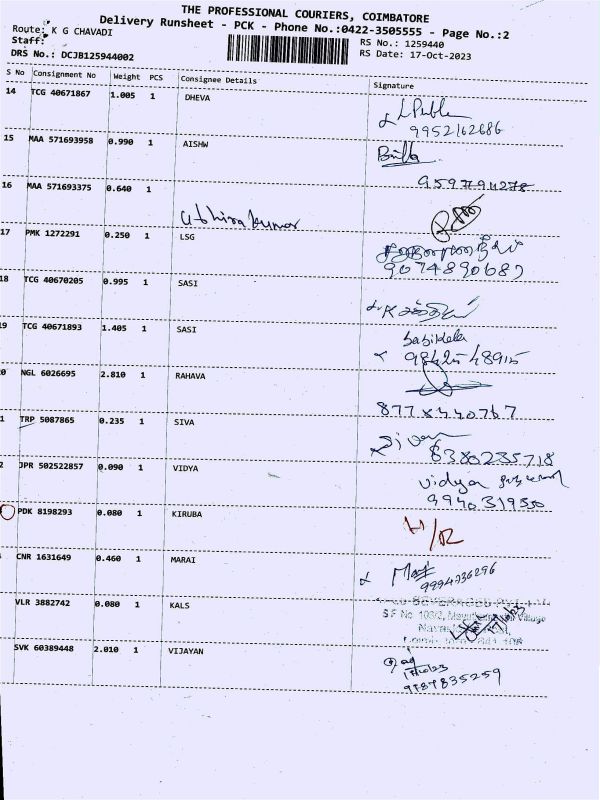 THE PROFESSIONAL COURIERS, COIMBATORE
Delivery Runsheet - PCK - Phone No.:0422-3505555 - Page No.:2
Route: K G CHAVADI
Staff:
RS No.: 1259440
DRS No.: DCJB125944002
RS Date: 17-Oct-2023
S No Consignment No Weight PCS Consignee Details Signature
14 TCG 40671867 1.005 1 DHEVA
9952162686
15 MAA 571693958 0.990 1 AISHW
16 MAA 571693375 0.640 1
17 PMK 1272291 0.250 1 LSG
9074890687
18 TCG 40670205 0.995 1 SASI
9 TCG 40671893 1.405 1 SASI
Sasikala
98425 48915
0 NGL 6026695 2.810 1 RAHAVA
1 TRP 5087865 0.235 1 SIVA
8380235718
2 JPR 502522857 0.090 1 VIDYA
vidya
9940319550
PDK 8198293 0.080 1 KIRUBA
CNR 1631649 0.460 1 MARAI
9994736296
VLR 3882742 0.080 1 KALS
SVK 60389448 2.010 1 VIJAYAN
9787835259